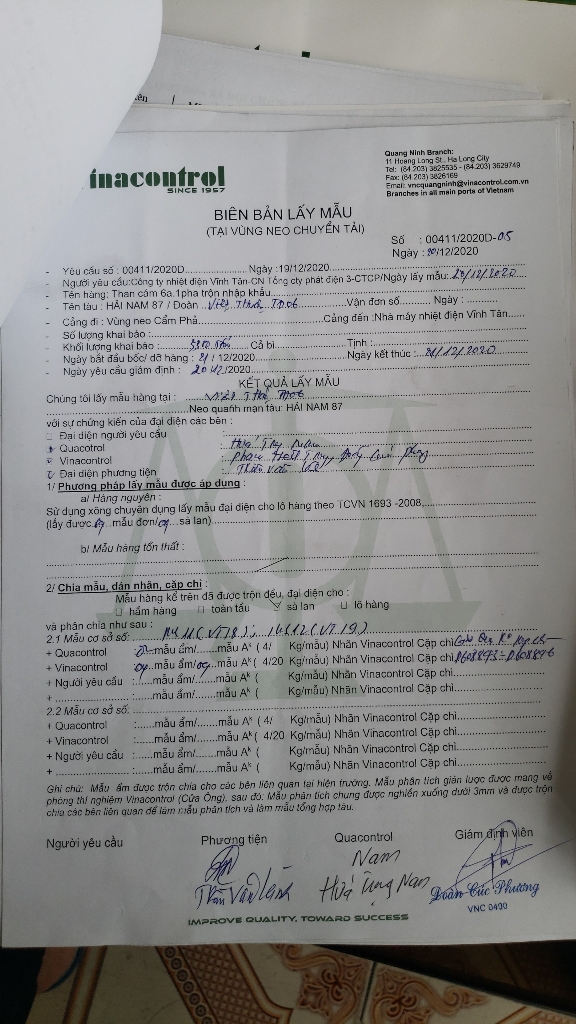 inacontrol
SINCE 1957
Quang Ninh Branch:
11 Hoang Long St., Ha Long City
Tel: (84.203) 3825535 - (84.203) 3629749
Fax: (84.203) 3826169
Email: vncquangninh@vinacontrol.com.vn
Branches in all main ports of Vietnam
BIÊN BẢN LẤY MẪU
(TẠI VÙNG NEO CHUYỂN TẢI)
Số : 00411/2020D-05
Ngày : 20/12/2020
- Yêu cầu số : 00411/2020D Ngày :19/12/2020
- Người yêu cầu:Công ty nhiệt điện Vĩnh Tân-CN Tổng cty phát điện 3-CTCP/Ngày lấy mẫu: 20/12/2020
- Tên hàng: Than cám 6a.1pha trộn nhập khẩu
- Tên tàu : HẢI NAM 87 / Đoàn Việt Thuận Vận đơn số Ngày :
- Cảng đi : Vùng neo Cẩm Phả Cảng đến :Nhà máy nhiệt điện Vĩnh Tân
- Số lượng khai báo :
- Khối lượng khai báo : Cả bì Tịnh :
- Ngày bắt đầu bốc/ dỡ hàng : 21 / 12/2020 Ngày kết thúc : 21/12/2020
- Ngày yêu cầu giám định : 20/12/2020
KẾT QUẢ LẤY MẪU
Chúng tôi lấy mẫu hàng tại :
Neo quanh mạn tàu: HẢI NAM 87
với sự chứng kiến của đại diện các bên :
Đại diện người yêu cầu :
Quacotrol : Hứa Tùng Nam
Vinacotrol :
Đại diện phương tiện :
1/ Phương pháp lấy mẫu được áp dụng :
a/ Hàng nguyên :
Sử dụng xông chuyên dụng lấy mẫu đại diện cho lô hàng theo TCVN 1693 -2008,
(lấy được mẫu đơn/ sà lan)
b/ Mẫu hàng tổn thất :
2/ Chia mẫu, dán nhãn, cặp chì :
Mẫu hàng kể trên đã được trộn đều, đại diện cho :
hầm hàng toàn tầu sà lan lô hàng
và phân chia như sau :
2.1 Mẫu cơ sở số: M11(VT18); M12(VT19)
+ Quacontrol : mẫu ẩm/ mẫu Aᵏ ( 4/ Kg/mẫu) Nhãn Vinacontrol Cặp chì
+ Vinacontrol : mẫu ẩm/ mẫu Aᵏ ( 4/20 Kg/mẫu) Nhãn Vinacontrol Cặp chì
+ Người yêu cầu : mẫu ẩm/ mẫu Aᵏ ( Kg/mẫu) Nhãn Vinacontrol Cặp chì
+ : mẫu ẩm/ mẫu Aᵏ ( Kg/mẫu) Nhãn Vinacontrol Cặp chì
2.2 Mẫu cơ sở số:
+ Quacontrol : mẫu ẩm/ mẫu Aᵏ ( 4/ Kg/mẫu) Nhãn Vinacontrol Cặp chì
+ Vinacontrol : mẫu ẩm/ mẫu Aᵏ ( 4/20 Kg/mẫu) Nhãn Vinacontrol Cặp chì
+ Người yêu cầu : mẫu ẩm/ mẫu Aᵏ ( Kg/mẫu) Nhãn Vinacontrol Cặp chì
+ : mẫu ẩm/ mẫu Aᵏ ( Kg/mẫu) Nhãn Vinacontrol Cặp chì
Ghi chú: Mẫu ẩm được trộn chia cho các bên liên quan tại hiện trường. Mẫu phân tích giản lược được mang về
phòng thí nghiệm Vinacontrol (Cửa Ông), sau đó: Mẫu phân tích chung được nghiền xuống dưới 3mm và được trộn
chia các bên liên quan để làm mẫu phân tích và làm mẫu tổng hợp tàu.
Người yêu cầu Phương tiện Quacontrol Giám định viên
Nam
Trần Văn Hứa Tùng Nam Đoàn Cúc Phương
VNC 0400
IMPROVE QUALITY, TOWARD SUCCESS